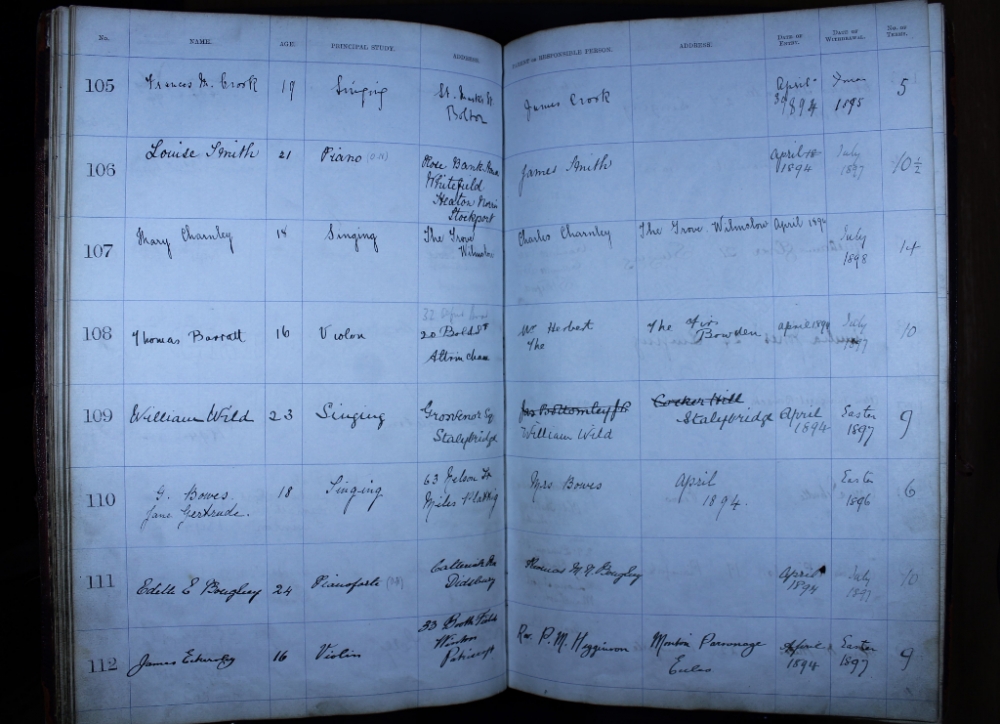 No. NAME. AGE. PRINCIPAL STUDY. ADDRESS. PARENT OR RESPONSIBLE PERSON. ADDRESS. DATE OF ENTRY. DATE OF WITHDRAWAL. NO. OF TERMS.
105 Frances M. Crook 19 Singing St. Bolton James Crook April 1894 Xmas 1895 5
106 Louise Smith 21 Piano Rose Bank
Whitefield
Heaton Norris
Stockport James Smith April 1894 July 1897 10 1/2
107 Mary Charnley 18 Singing The Grove
Wilmslow Charles Charnley The Grove Wilmslow April 1894 July 1898 14
108 Thomas Barratt 16 Violon 20 Bold St
Altrincham Wm Herbert
The The Firs
Bowden April 1894 July 1897 10
109 William Wild 23 Singing Grosvenor Sq
Stalybridge Jas Bottomley J.P.
William Wild Cocker Hill
Stalybridge April 1894 Easter 1897 9
110 G. Bowes.
Jane Gertrude. 18 Singing 63 Nelson St
Miles Platting Mrs Bowes April
1894. Easter 1896 6
111 Edith E Bengley 24 Pianoforte Didsbury Thomas Bengley April 1894 July 1897 10
112 James 16 Violin 33 Booth Field
Winton
Patricroft Rev P.M. Higginson Monton Parsonage
Eccles April 1894 Easter 1897 9